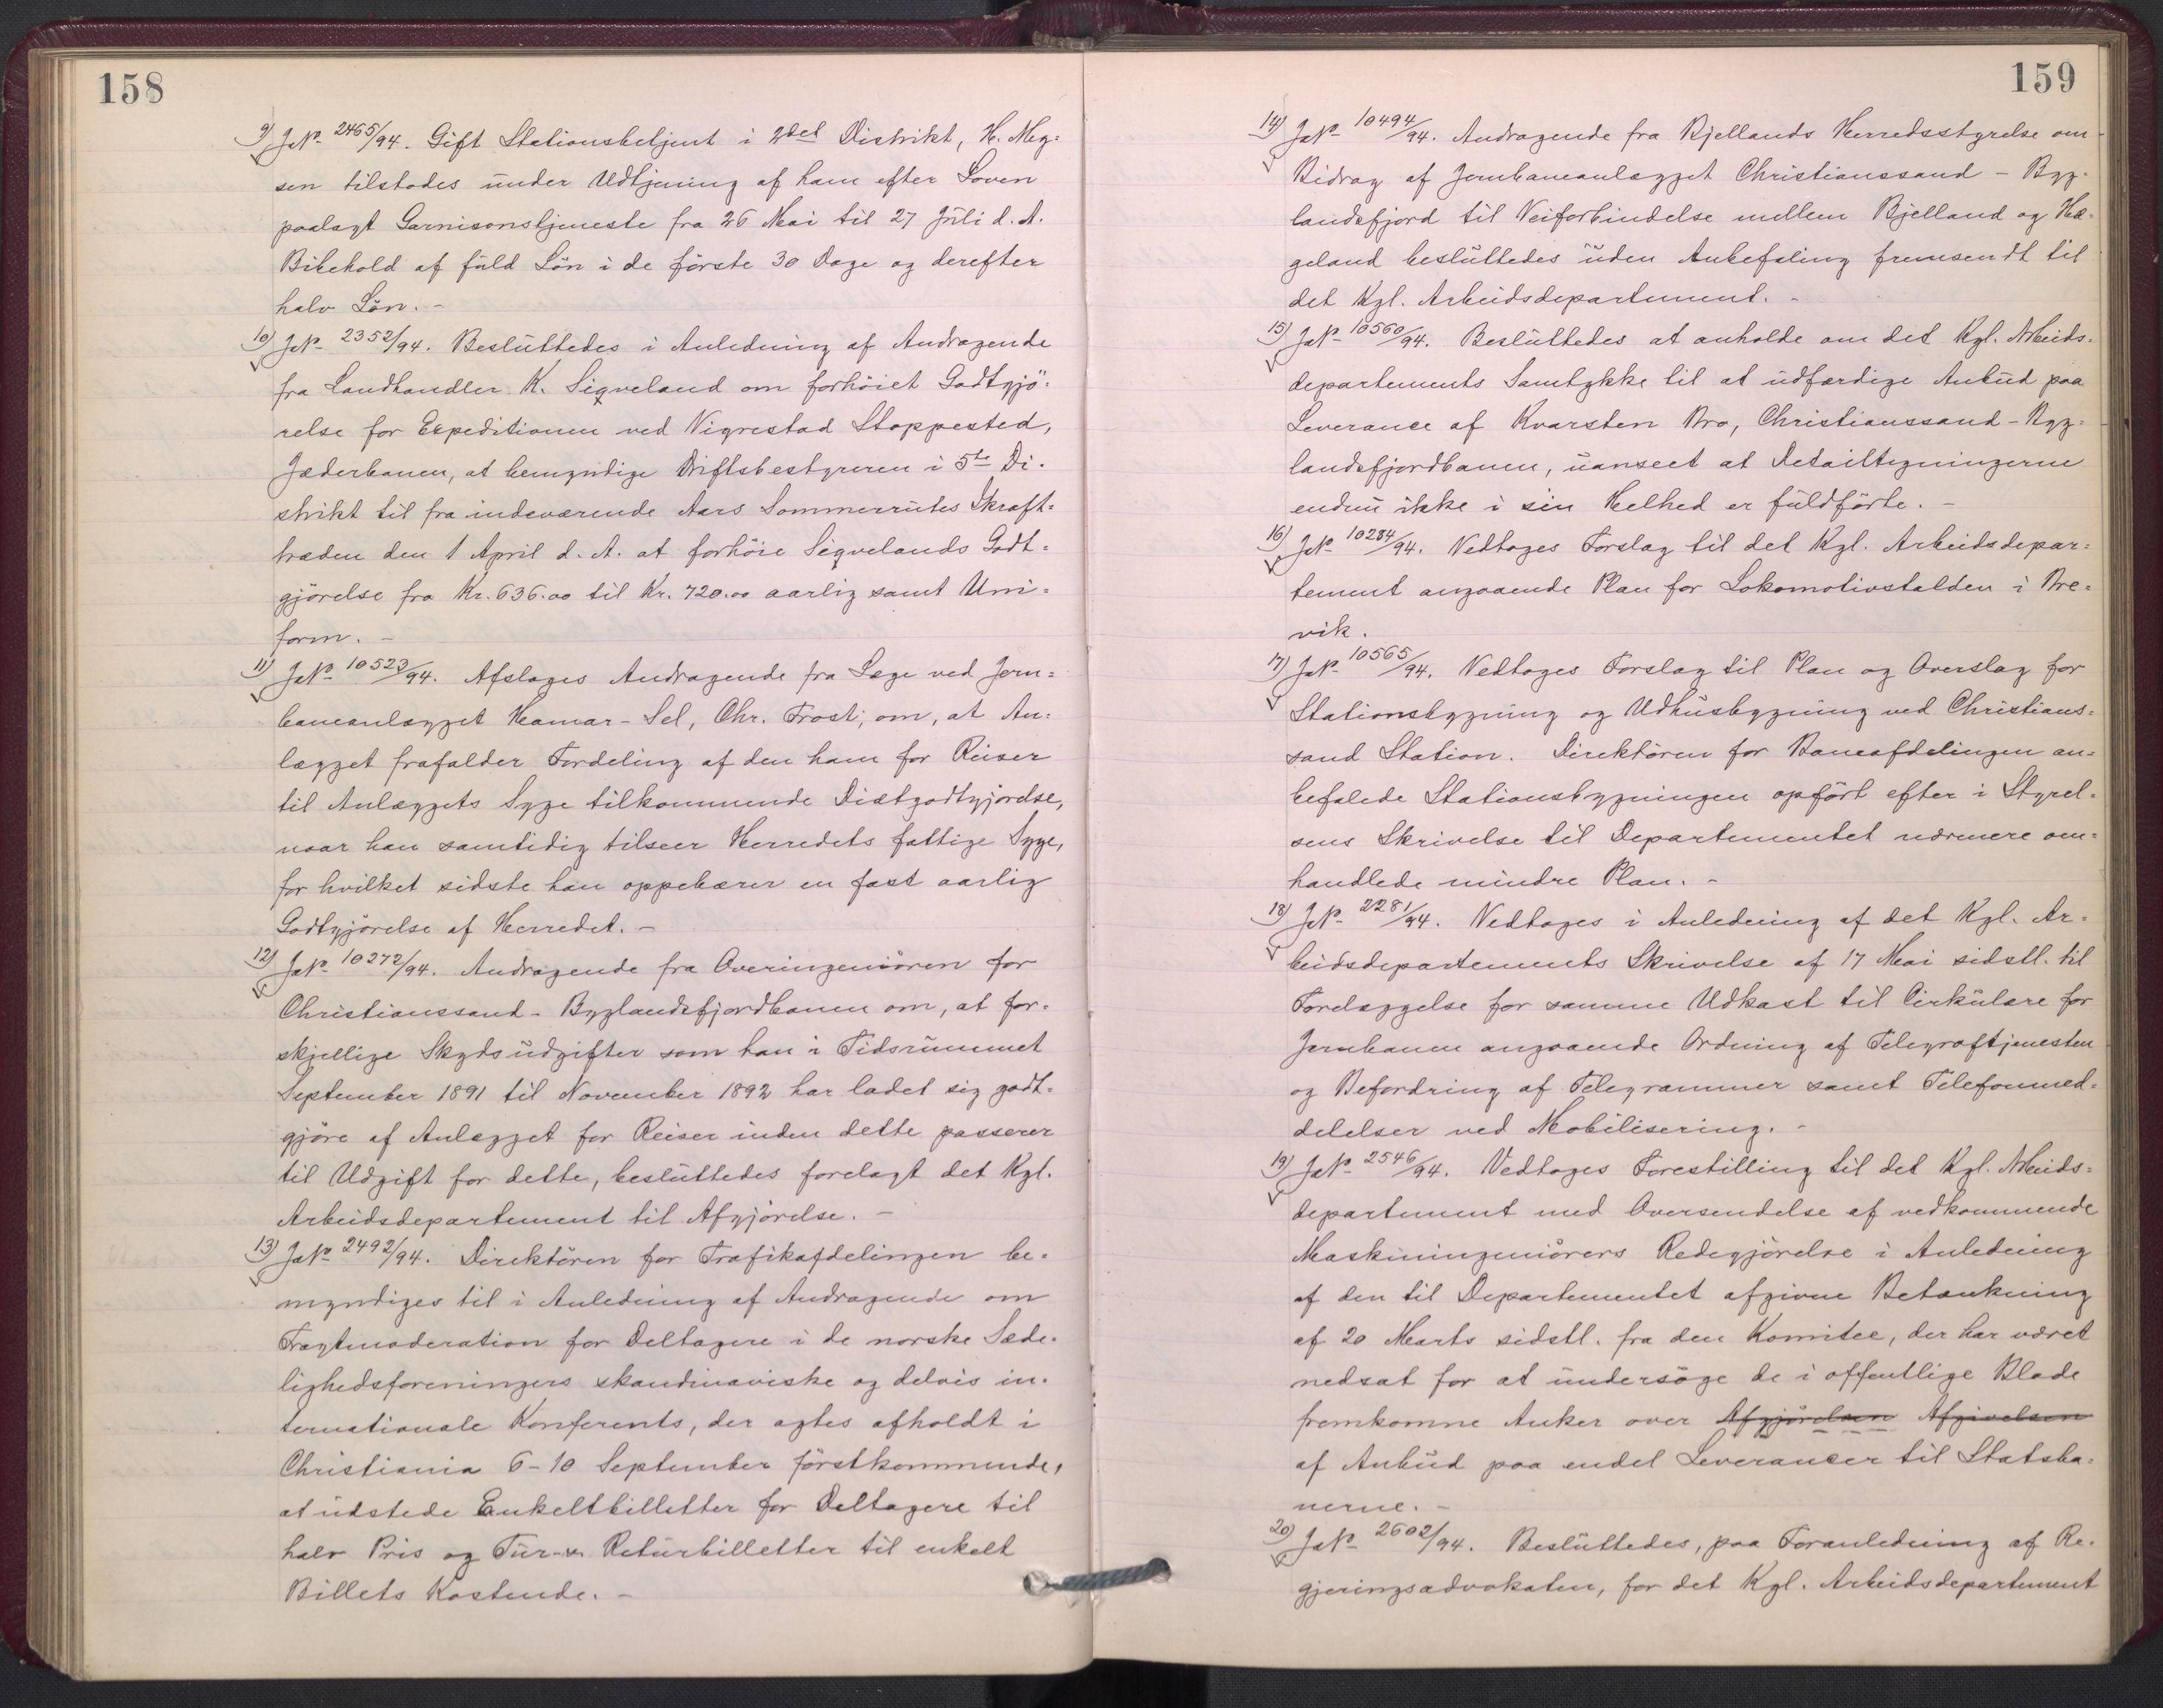 158
9) J.No. 2465/94. Gift Stationsbetjent i 2det Distrikt, H. Meg=
sen tilstodes under Udtjening af ham efter Loven
paalagt Garnisonstjeneste fra 26 Mai til 27 Juli d. A.
Bibehold af fuld Lön i de förste 30 Dage og derefter
halv Lön. -
10) J.No. 2352/94. Besluttedes i Anledning af Andragende
fra Landhandler K. Sigveland om forhöiet Godtgjö=
relse for Expeditionen ved Vigrestad Stoppested,
Jæderbanen, at bemyndige Driftsbestyreren i 5te Di-
strikt til fra indeværende Aars Sommerrutes Ikraft=
træden den 1 April d. A. at forhöie Sigvelands Godt=
gjörelse fra Kr. 636.00 til Kr. 720.00 aarlig samt Uni=
form. -
11) J.No. 10523/94. Afslages Andragende fra Læge ved Jern=
baneanlægget Hamar - Sel, Chr. Frost, om, at An=
lægget frafalder Fordeling af den ham for Reiser
til Anlæggets Syge tilkommende Diætgodtgjördse,
naar han samtidig tilseer Herredets fattige Syge,
for hvilket sidste han oppebærer en fast aarlig
Godtgjörelse af Herredet. -
12) J.No. 10272/94. Andragende fra Overingeniören for
Christianssand - Byglandsfjordbanen om, at for-
skjellige Skydsudgifter som han i Tidsrummet
September 1891 til November 1892 har ladet sig godt-
gjöre af Anlægget for Reiser inden dette passerer
til Udgift for dette, besluttedes forelagt det Kgl.
Arbeidsdepartement til Afgjörelse. -
13) J.No. 2492/94. Direktören for Trafikafdelingen be-
myndiges til i Anledning af Andragende om
Fragtmoderation for Deltagere i de norske Sæde-
lighedsforeningers skandinaviske og delvis in-
ternationale Konferents, der agtes afholdt i
Christiania 6 - 10 September förstkommende,
at udstede Enkeltbilletter for Deltagere til
halv Pris og Tur- & Returbilletter til enkelt
Billets Kostende. -
159
14) J.No. 10494/94. Andragende fra Bjellands Herredsstyrelse om
Bidrag af Jernbaneanlægget Christianssand - Byg-
landsfjord til Veiforbindelse mellem Bjelland og Hæ-
geland besluttedes uden Anbefaling fremsendt til
det Kgl. Arbeidsdepartement. -
15) J.No. 10560/94. Besluttedes at anholde om det Kgl. Arbeids=
departements Samtykke til at udfærdige Anbud paa
Leverance af Kvarsten Bro, Christianssand - Byg=
landsfjordbanen, uanseet at Detailtegningerne
endnu ikke i sin Helhed er fuldförte. -
16) J.No. 10284/94. Vedtages Forslag til det Kgl. Arbeidsdepar=
tement angaaende Plan for Lokomotivstalden i Bre=
vik.
17) J.No. 10565/94. Vedtages Forslag til Plan og Overslag for
Stationsbygning og Udhusbygning ved Christians=
sand Station. Direktören for Baneafdelingen an=
befalede Stationsbygningen opfört efter i Styrel-
sens Skrivelse til Departementet nærmere om=
handlede mindre Plan. -
18) J.No. 2281/94. Vedtages i Anledning af det Kgl. Ar=
beidsdepartements Skrivelse af 17 Mai sidstl. til
Forelæggelse for samme Udkast til Cirkulære for
Jernbanen angaaende Ordning af Telegraftjenesten
og Befordring af Telegrammer samt Telefonmed=
delelser ved Mobilisering. -
19) J.No. 2546/94. Vedtages Forestilling til det Kgl. Arbeids=
departement med Oversendelse af vedkommende
Maskiningeniörers Redegjörelse i Anledning
af den til Departementet afgivne Betænkning
af 20 Marts sidstl. fra den Komitee, der har været
nedsat for at undersöge de i offentlige Blade
fremkomne Anker over Afgjörelsen Afgivelsen
af Anbud paa endel Leverancer til Statsba=
nerne. -
20) J.No. 2602/94. Besluttedes, paa Foranledning af Re-
gjeringsadvokaten, for det Kgl. Arbeidsdepartement